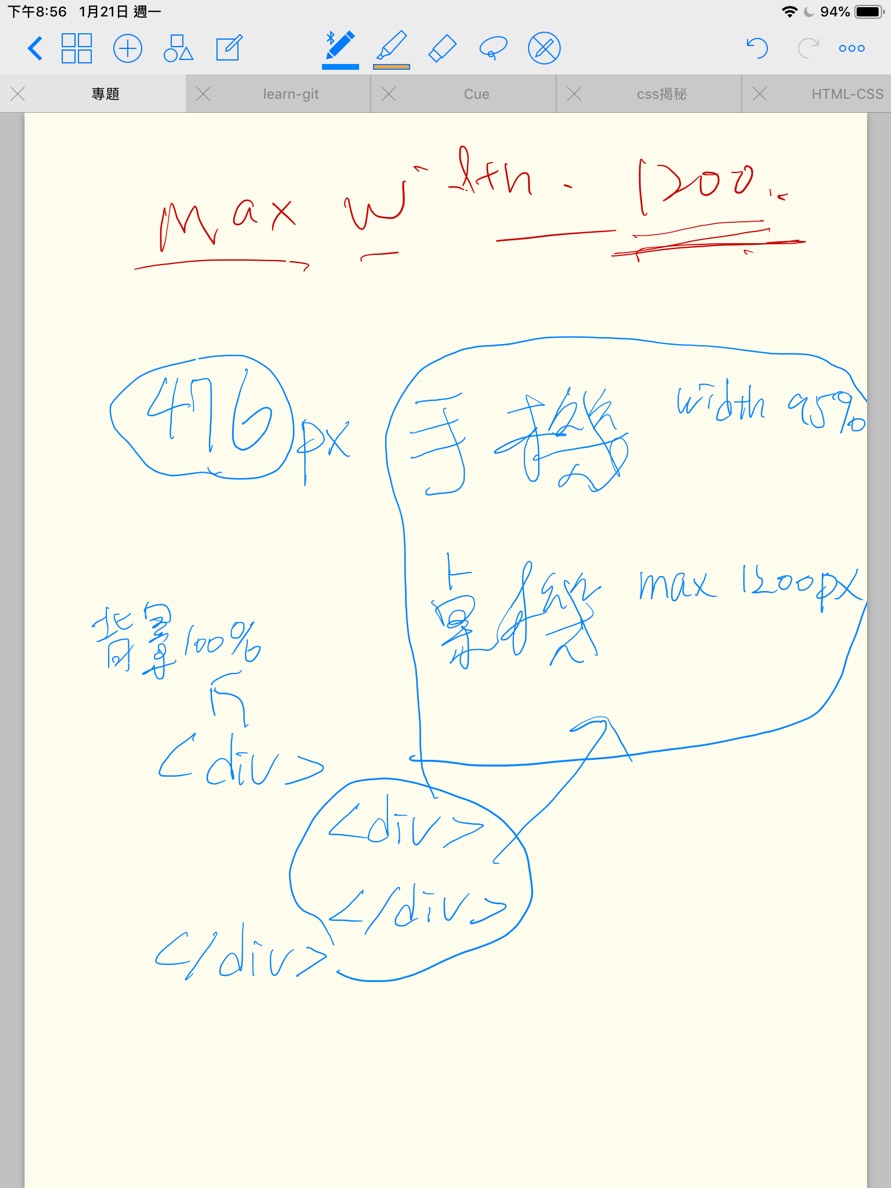 下午8:56 1月21日 週一 94%
專題 learn-git Cue css揭秘 HTML-CSS
Max Width. 1200.
476px
手機 width 95%
桌機 max 1200px
背景100%
<div>
<div>
</div>
</div>